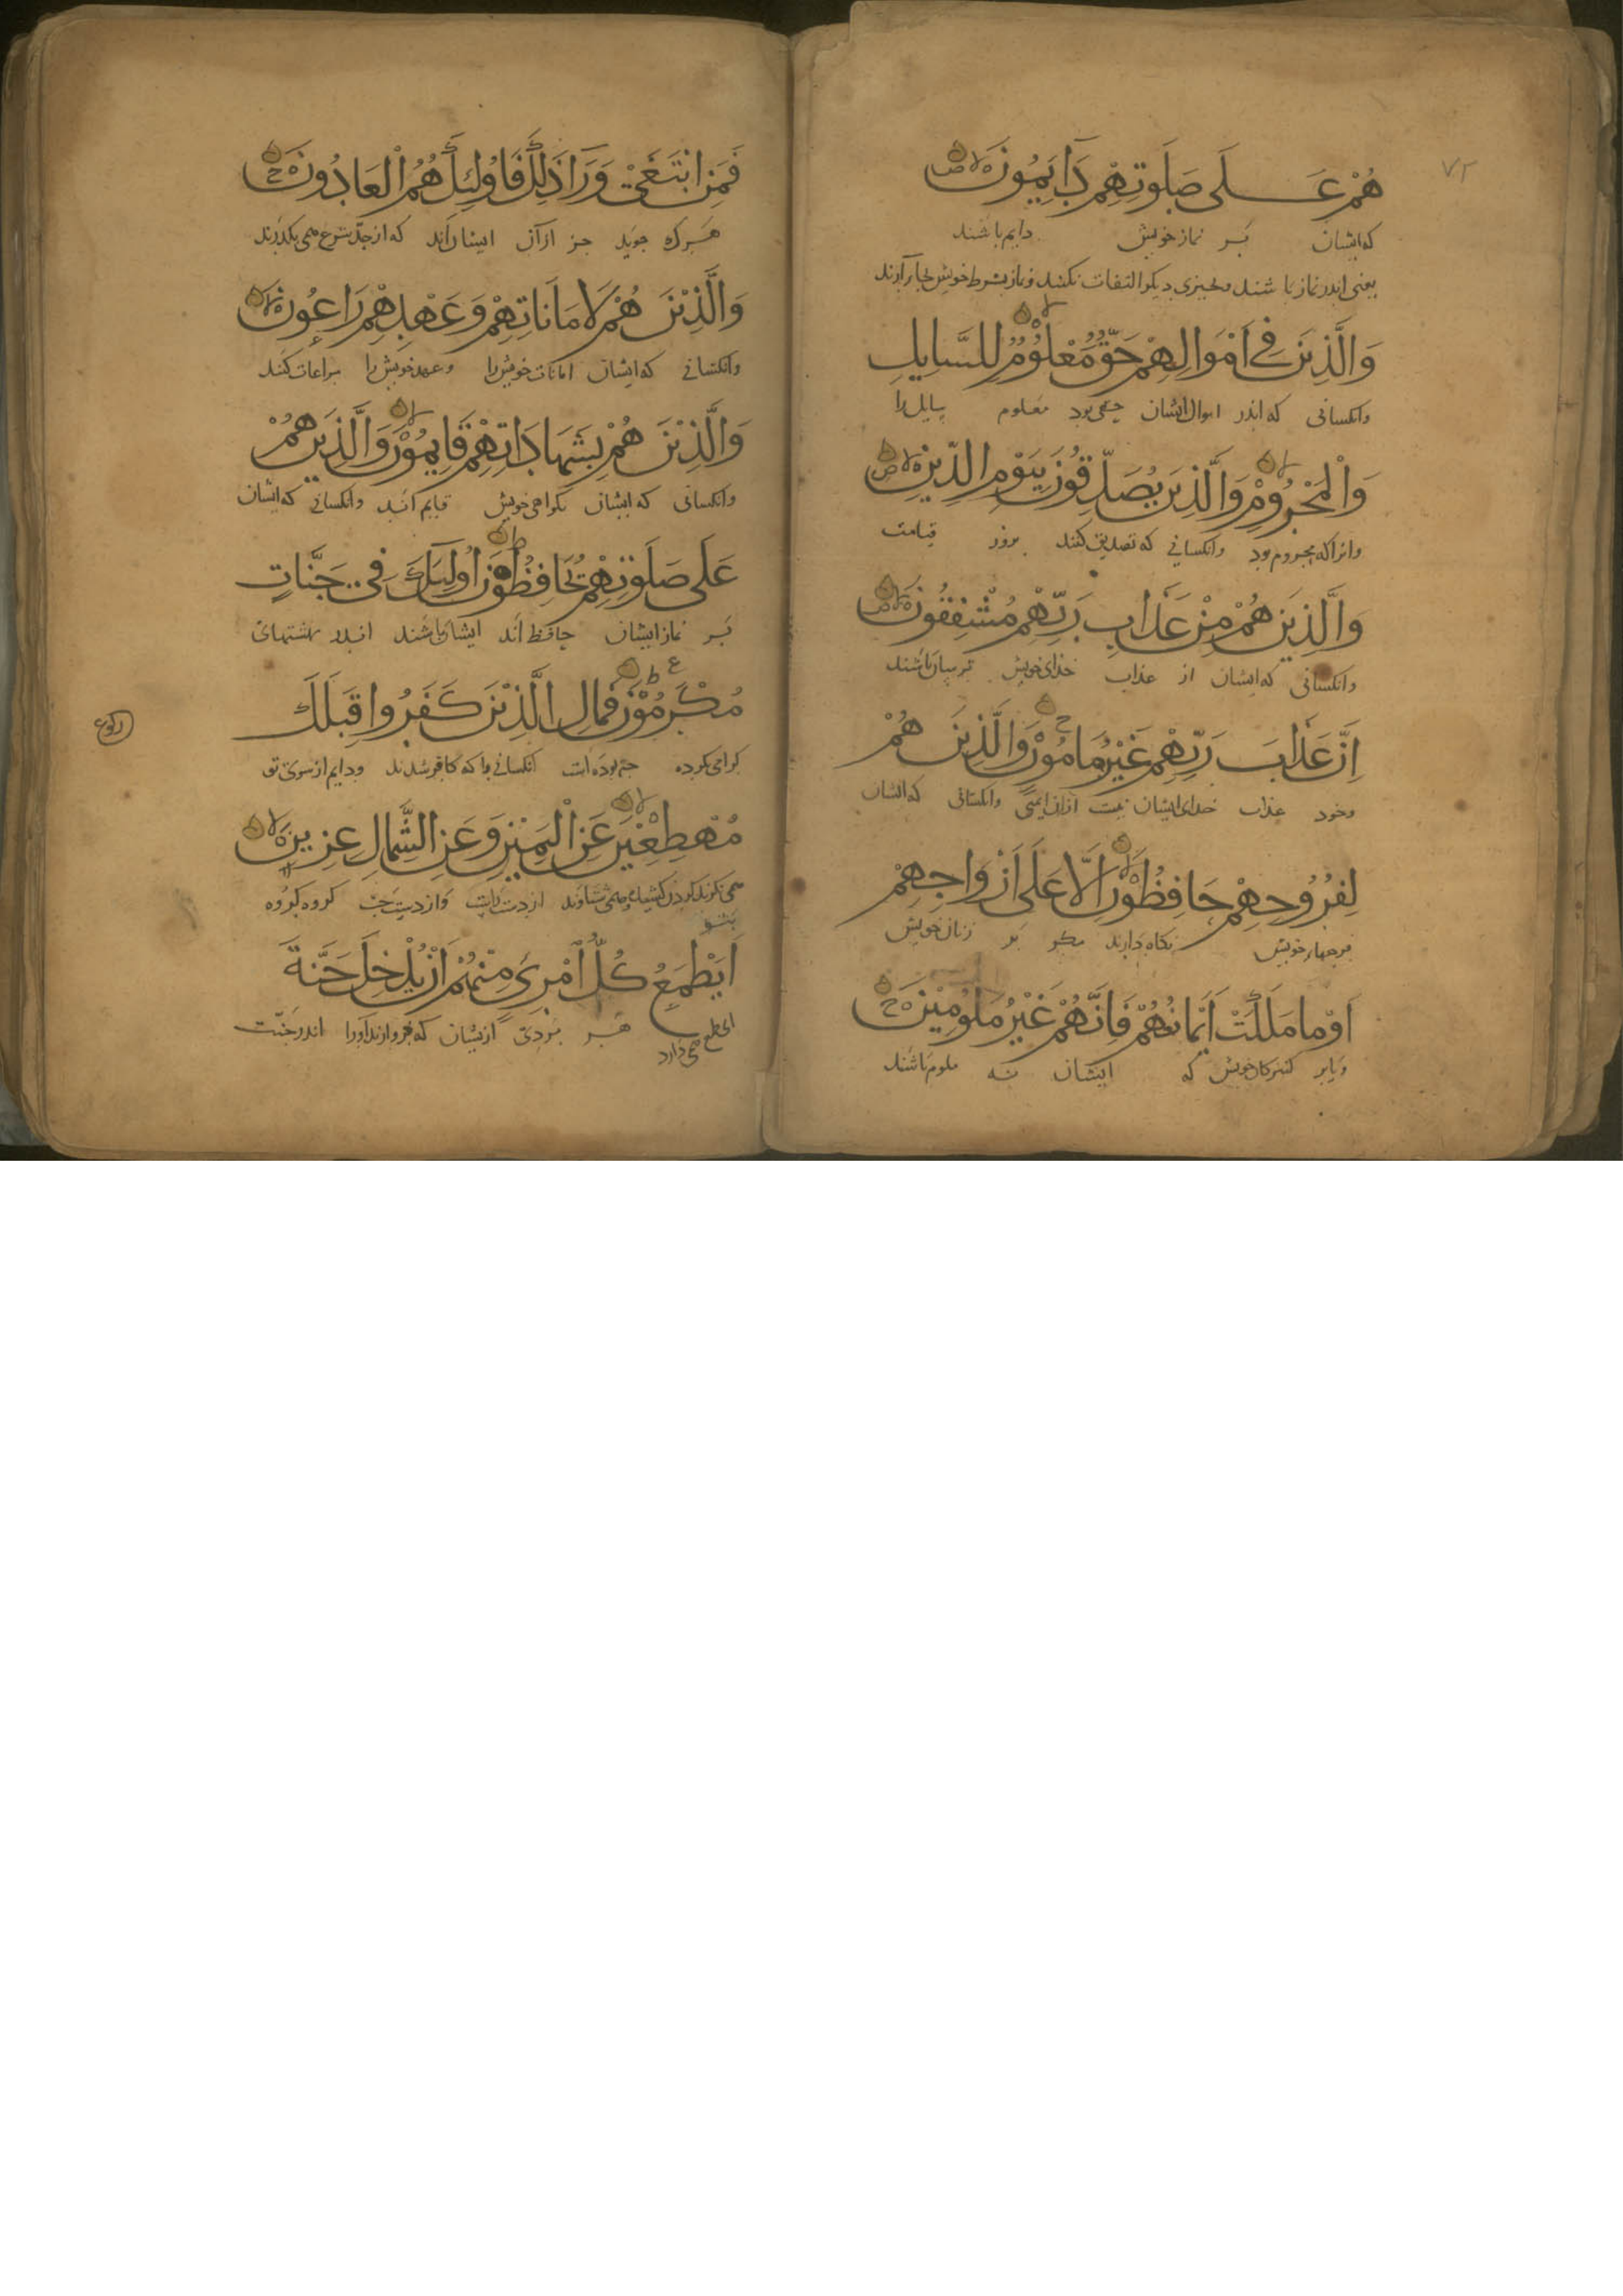 ٧٢
هُمْ عَلَى صَلَوتِهِمْ دَايِمُونَ لا ص
که ایشان بر نماز خویش دایم باشند
یعنی اندر نماز باشند و بچیزی دیگر التفات نکنند و نماز بشرط خویش بجا آرند
وَالَّذِينَ فِي اَمْوَالِهِمْ حَقٌّ مَعْلُومٌ لا لِلسَّايِلِ
وانکسانی که اندر اموال ایشان حقی بود معلوم سایل را
وَالْمَحْرُومِ لا وَالَّذِينَ يُصَدِّقُونَ بِيَوْمِ الدِّينِ لا ص
وانرا که محروم بود وانکسانی که تصدیق کنند بروز قیامت
وَالَّذِينَ هُمْ مِنْ عَذَابِ رَبِّهِمْ مُشْفِقُونَ لا ص
وانکسانی که ایشان از عذاب خدای خویش ترسان باشند
اِنَّ عَذَابَ رَبِّهِمْ غَيْرُ مَامُونٍ ح وَالَّذِينَ هُمْ
وخود عذاب خدای ایشان نیست ازان ایمنی وانکسانی که ایشان
لِفُرُوجِهِمْ حَافِظُونَ لا اِلَّا عَلَى اَزْوَاجِهِمْ
فرجهاء خویش نکاه دارند مکر بر زنان خویش
اَوْ مَا مَلَكَتْ اَيْمَانُهُمْ فَاِنَّهُمْ غَيْرُ مَلُومِينَ ح
ویا بر کنیزکان خویش که ایشان نه ملوم باشند
فَمَنِ ابْتَغَى وَرَآءَ ذَلِكَ فَاُولَئِكَ هُمُ الْعَادُونَ ح
هرکه جوید جز ازان ایشان اند که از حد شرع می بکدرند
وَالَّذِينَ هُمْ لِاَمَانَاتِهِمْ وَعَهْدِهِمْ رَاعُونَ لا
وانکسانی که ایشان امانات خویش را وعهد خویش را مراعات کنند
وَالَّذِينَ هُمْ بِشَهَادَاتِهِمْ قَايِمُونَ لا وَالَّذِينَ هُمْ
وانکسانی که ایشان بکواهی خویش قایم اند وانکسانی که ایشان
عَلَى صَلَوتِهِمْ يُحَافِظُونَ ط اُولَئِكَ فِي جَنَّاتٍ
بر نماز ایشان حافظ اند ایشان باشند اندر بهشتهای
مُكْرَمُونَ ط ع فَمَالِ الَّذِينَ كَفَرُوا قِبَلَكَ
کرامی کرده چه بوده است انکسانی را که کافر شدند ودایم از سوی تو
رکوع
مُهْطِعِينَ لا عَنِ الْيَمِينِ وَعَنِ الشِّمَالِ عِزِينَ لا
از دست راست واز دست چپ کروه کروه
اَيَطْمَعُ كُلُّ امْرِئٍ مِنْهُمْ اَنْ يُدْخَلَ جَنَّةَ
طمع می دارد هر مردی ازیشان که فرو ارند او را اندر جنت